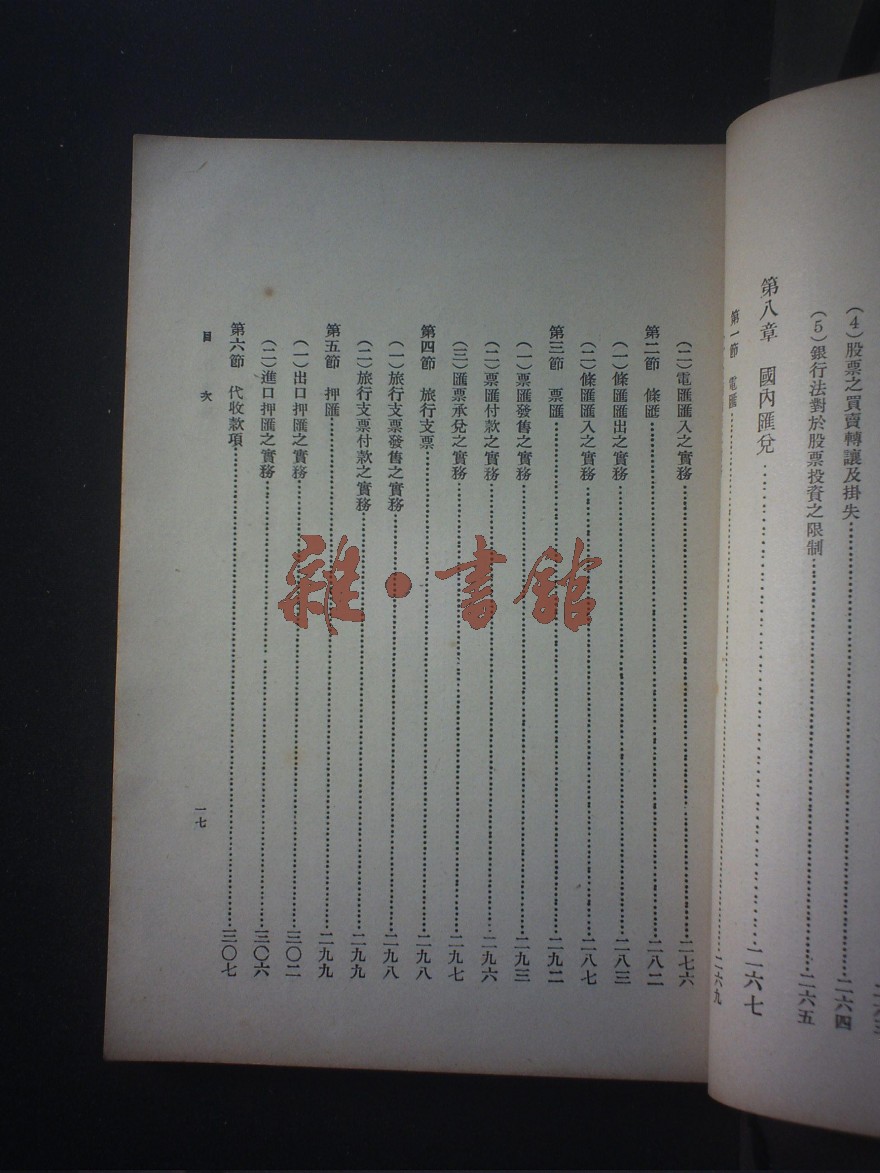 (4)股票之買賣轉讓及掛失……二六四
(5)銀行法對於股票投資之限制……二六五
第八章 國內匯兌……二六七
第一節 電匯……二六九
(二)電匯匯入之實務……二七六
第二節 條匯……二八二
(一)條匯匯出之實務……二八三
(二)條匯匯入之實務……二八七
第三節 票匯……二九二
(一)票匯發售之實務……二九三
(二)票匯付款之實務……二九六
(三)匯票承兌之實務……二九七
第四節 旅行支票……二九八
(一)旅行支票發售之實務……二九八
(二)旅行支票付款之實務……二九九
第五節 押匯……二九九
(一)出口押匯之實務……三〇二
(二)進口押匯之實務……三〇六
第六節 代收款項……三〇七
目 次
一七
雜·書館